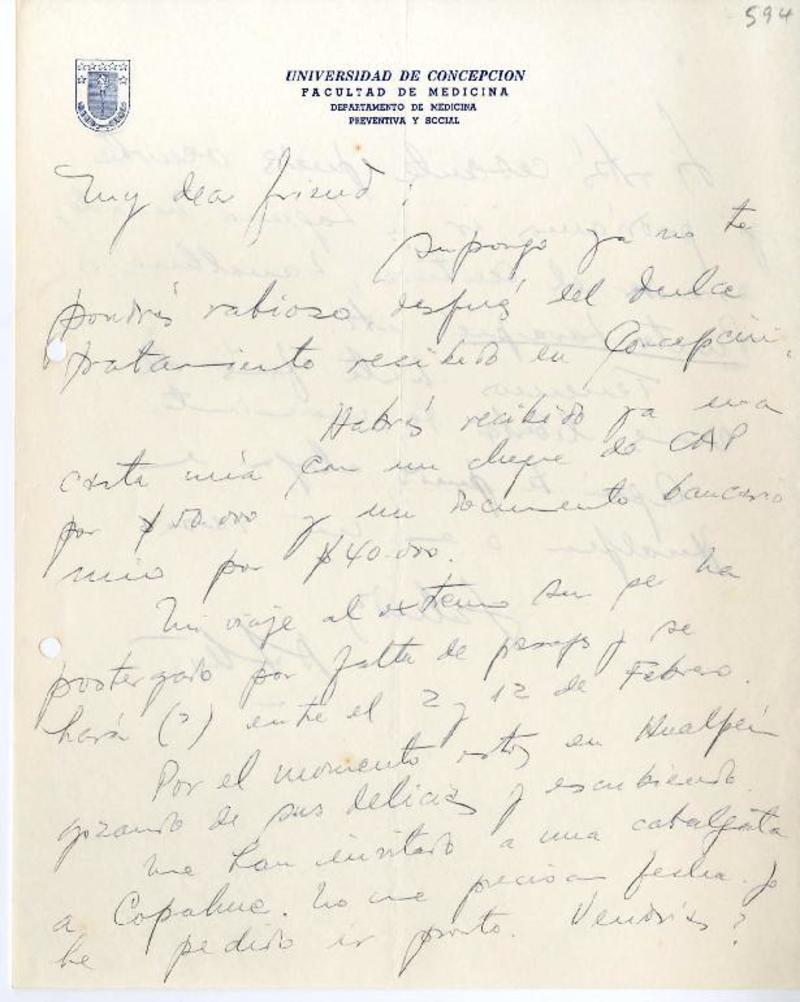 594
UNIVERSIDAD DE CONCEPCION
FACULTAD DE MEDICINA
DEPARTAMENTO DE MEDICINA
PREVENTIVA Y SOCIAL
My dear friend:
Supongo ya no te
pondrás rabioso después del dulce
tratamiento recibido en Concepción.
Habrás recibido ya una
carta mía con un cheque de CAP
por $50.000 y un documento bancario
mio por $40.000.
Mi viaje al extremo sur se ha
postergado por falta de pasajes y se
hará (?) entre el 2 y 12 de Febrero.
Por el momento estoy en Hualpén
gozando de sus delicias y escribiendo.
Me han invitado a una cabalgata
a Copahue. No me precisan fecha. Yo
he pedido ir pronto. Vendrías?